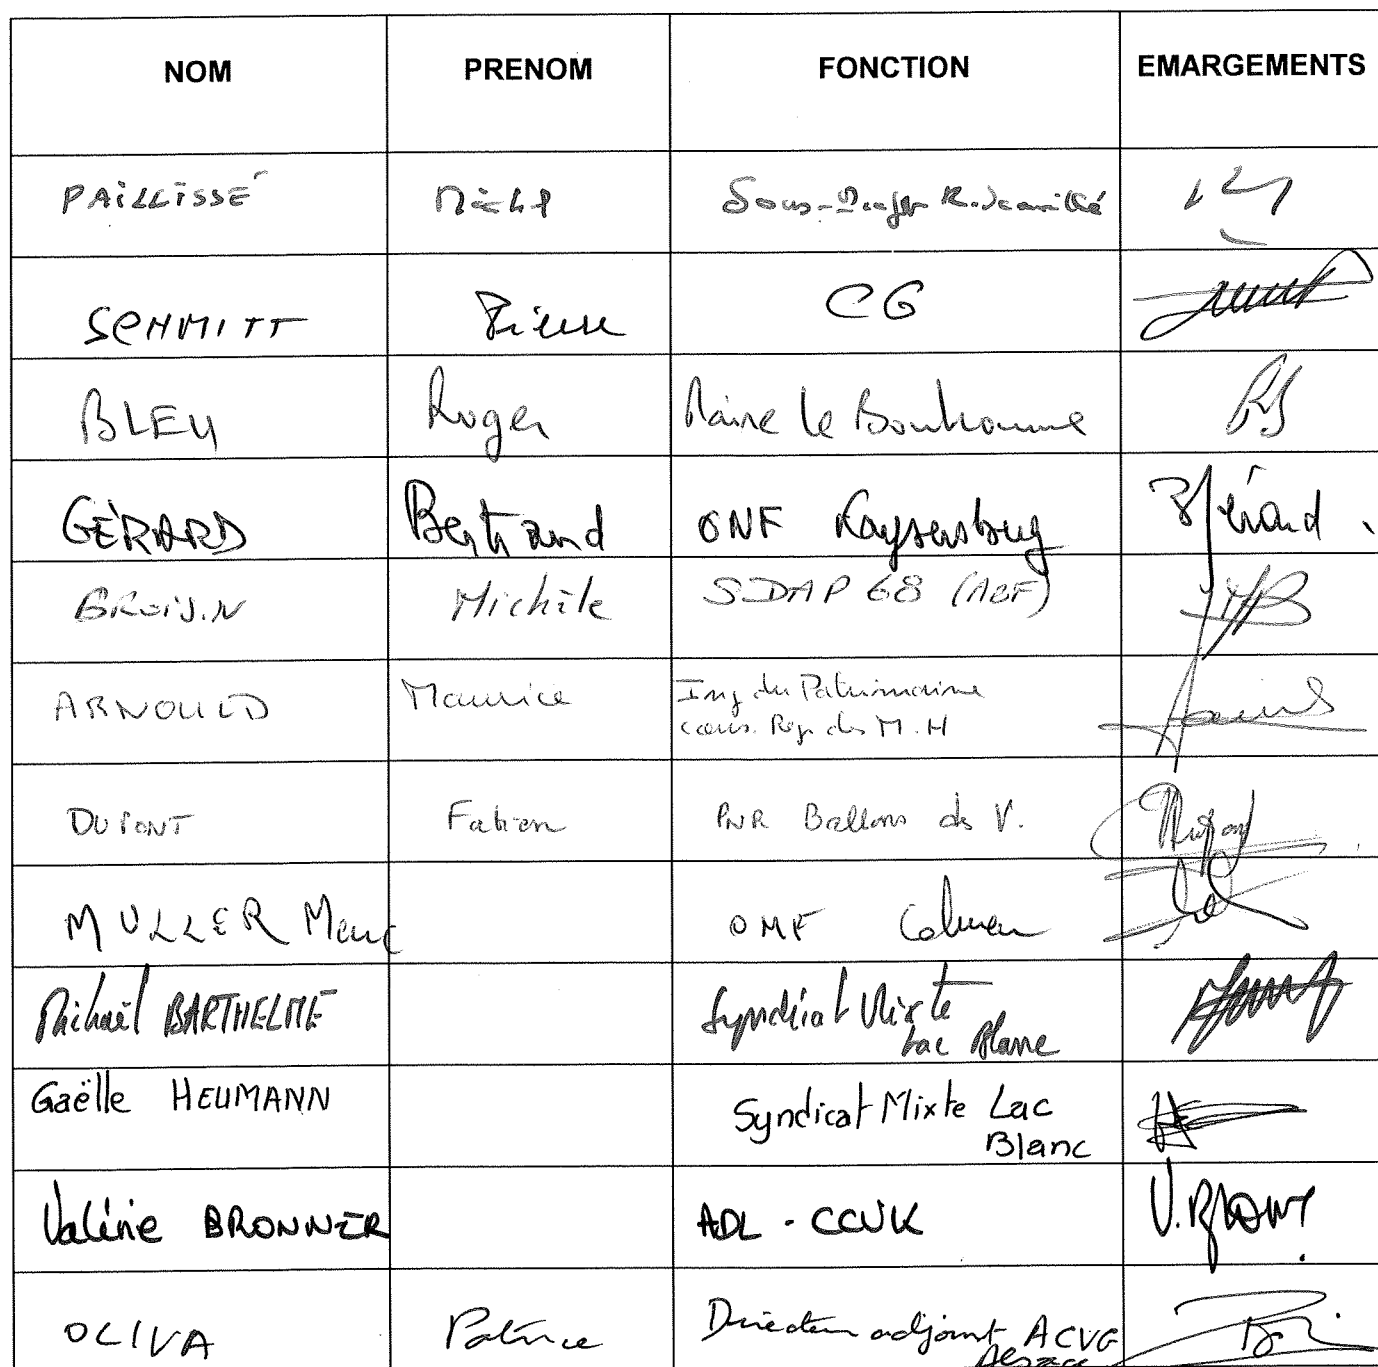 NOM PRENOM FONCTION EMARGEMENTS
PAILLISSÉ Michel Sous-Préfet Ribeauvillé
SCHMITT Pierre CG
BLEU Roger Maire le Bonhomme
GÉRARD Bertrand ONF Kaysersberg BGérard
BROISIN Michèle SDAP 68 (ABF)
ARNOULD Maurice Ing du Patrimoine
cons. Rég. des M.H
DUPONT Fabien PNR Ballons des V.
MULLER Marc ONF Colmar
Michaël BARTHELMÉ Syndicat Mixte
Lac Blanc
Gaëlle HEUMANN Syndicat Mixte Lac
Blanc
Valérie BRONNER ADL - CCVK V.Bronn
OLIVA Patrice Directeur adjoint ACVG
Alsace